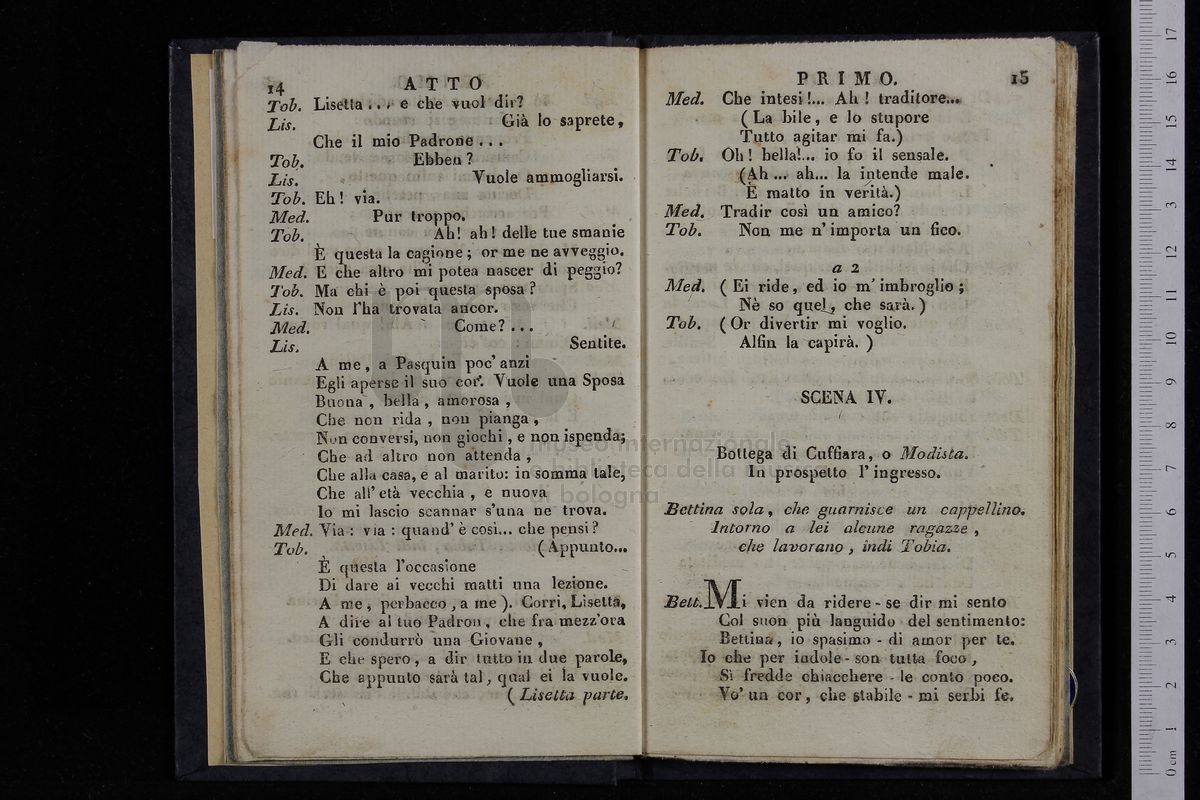 14 ATTO
Tob. Lisetta... e che vuol dir?
Lis. Già lo saprete,
Che il mio Padrone...
Tob. Ebben?
Lis. Vuole ammogliarsi.
Tob. Eh! via.
Med. Pur troppo.
Tob. Ah! ah! delle tue smanie
È questa la cagione; or me ne avveggio.
Med. E che altro mi potea nascer di peggio?
Tob. Ma chi è poi questa sposa?
Lis. Non l'ha trovata ancor.
Med. Come?...
Lis. Sentite.
A me, a Pasquin poc'anzi
Egli aperse il suo cor. Vuole una Sposa
Buona, bella, amorosa,
Che non rida, non pianga,
Non conversi, non giochi, e non ispenda;
Che ad altro non attenda,
Che alla casa, e al marito: in somma tale,
Che all'età vecchia, e nuova
Io mi lascio scannar s'una ne trova.
Med. Via: via: quand'è così... che pensi?
Tob. (Appunto...
È questa l'occasione
Di dare ai vecchi matti una lezione.
A me, perbacco, a me). Corri, Lisetta,
A dire al tuo Padron, che fra mezz'ora
Gli condurrò una Giovane,
E che spero, a dir tutto in due parole,
Che appunto sarà tal, qual ei la vuole.
(Lisetta parte.
PRIMO. 15
Med. Che intesi!... Ah! traditore...
(La bile, e lo stupore
Tutto agitar mi fa.)
Tob. Oh! bella!... io fo il sensale.
(Ah... ah... la intende male.
È matto in verità.)
Med. Tradir così un amico?
Tob. Non me n'importa un fico.
a 2
Med. (Ei ride, ed io m'imbroglio;
Nè so quel, che sarà.)
Tob. (Or divertir mi voglio.
Alfin la capirà.)
SCENA IV.
Bottega di Cuffiara, o Modista.
In prospetto l'ingresso.
Bettina sola, che guarnisce un cappellino.
Intorno a lei alcune ragazze,
che lavorano, indi Tobia.
Bett. Mi vien da ridere - se dir mi sento
Col suon più languido del sentimento:
Bettina, io spasimo - di amor per te.
Io che per indole - son tutta foco,
Sì fredde chiacchere - le conto poco.
Vo' un cor, che stabile - mi serbi fe.
museo internazionale
biblioteca della musica
di bologna
0 cm 1 2 3 4 5 6 7 8 9 10 11 12 13 14 15 16 17